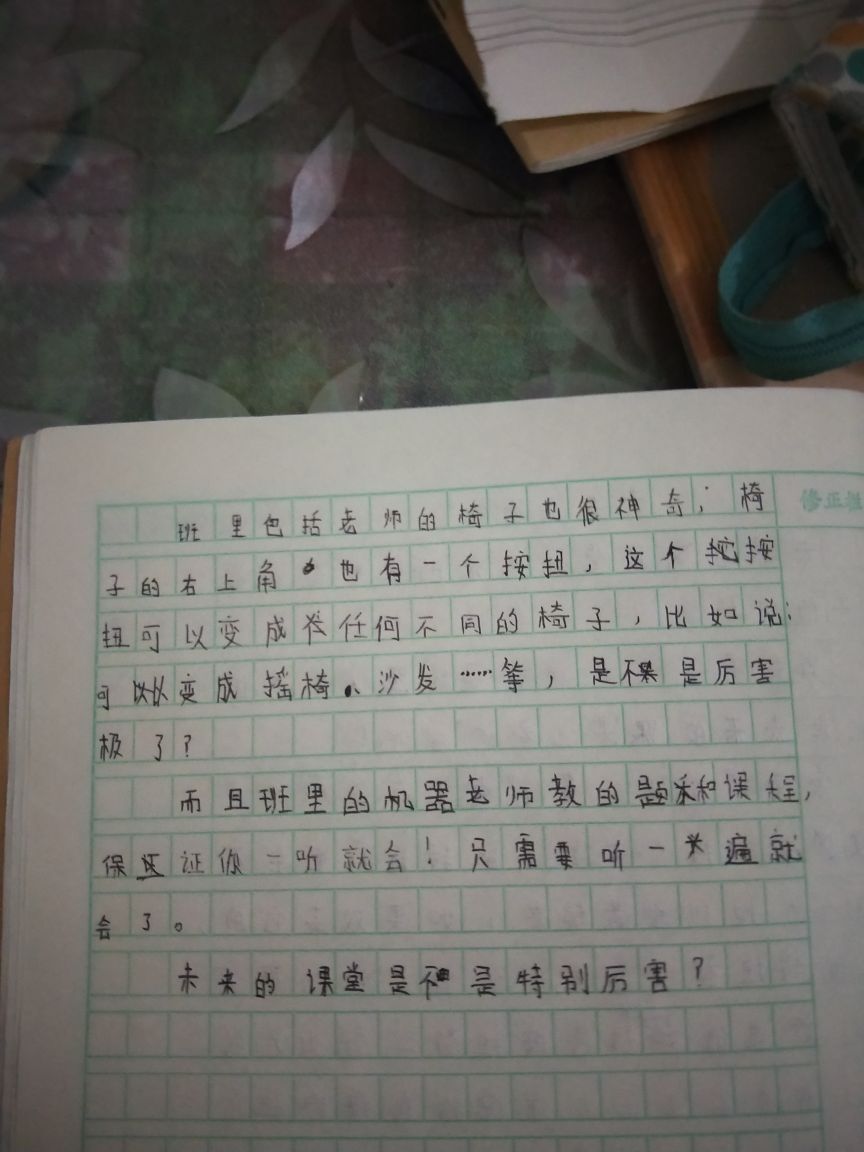 修正栏
班里包括老师的椅子也很神奇；椅
子的右上角也有一个按扭，这个按
扭可以变成任何不同的椅子，比如说：
可以变成摇椅、沙发……等，是不是厉害
极了？
而且班里的机器老师教的题和课程，
保证你一听就会！只需要听一遍就
会了。
未来的课堂是不是特别厉害？